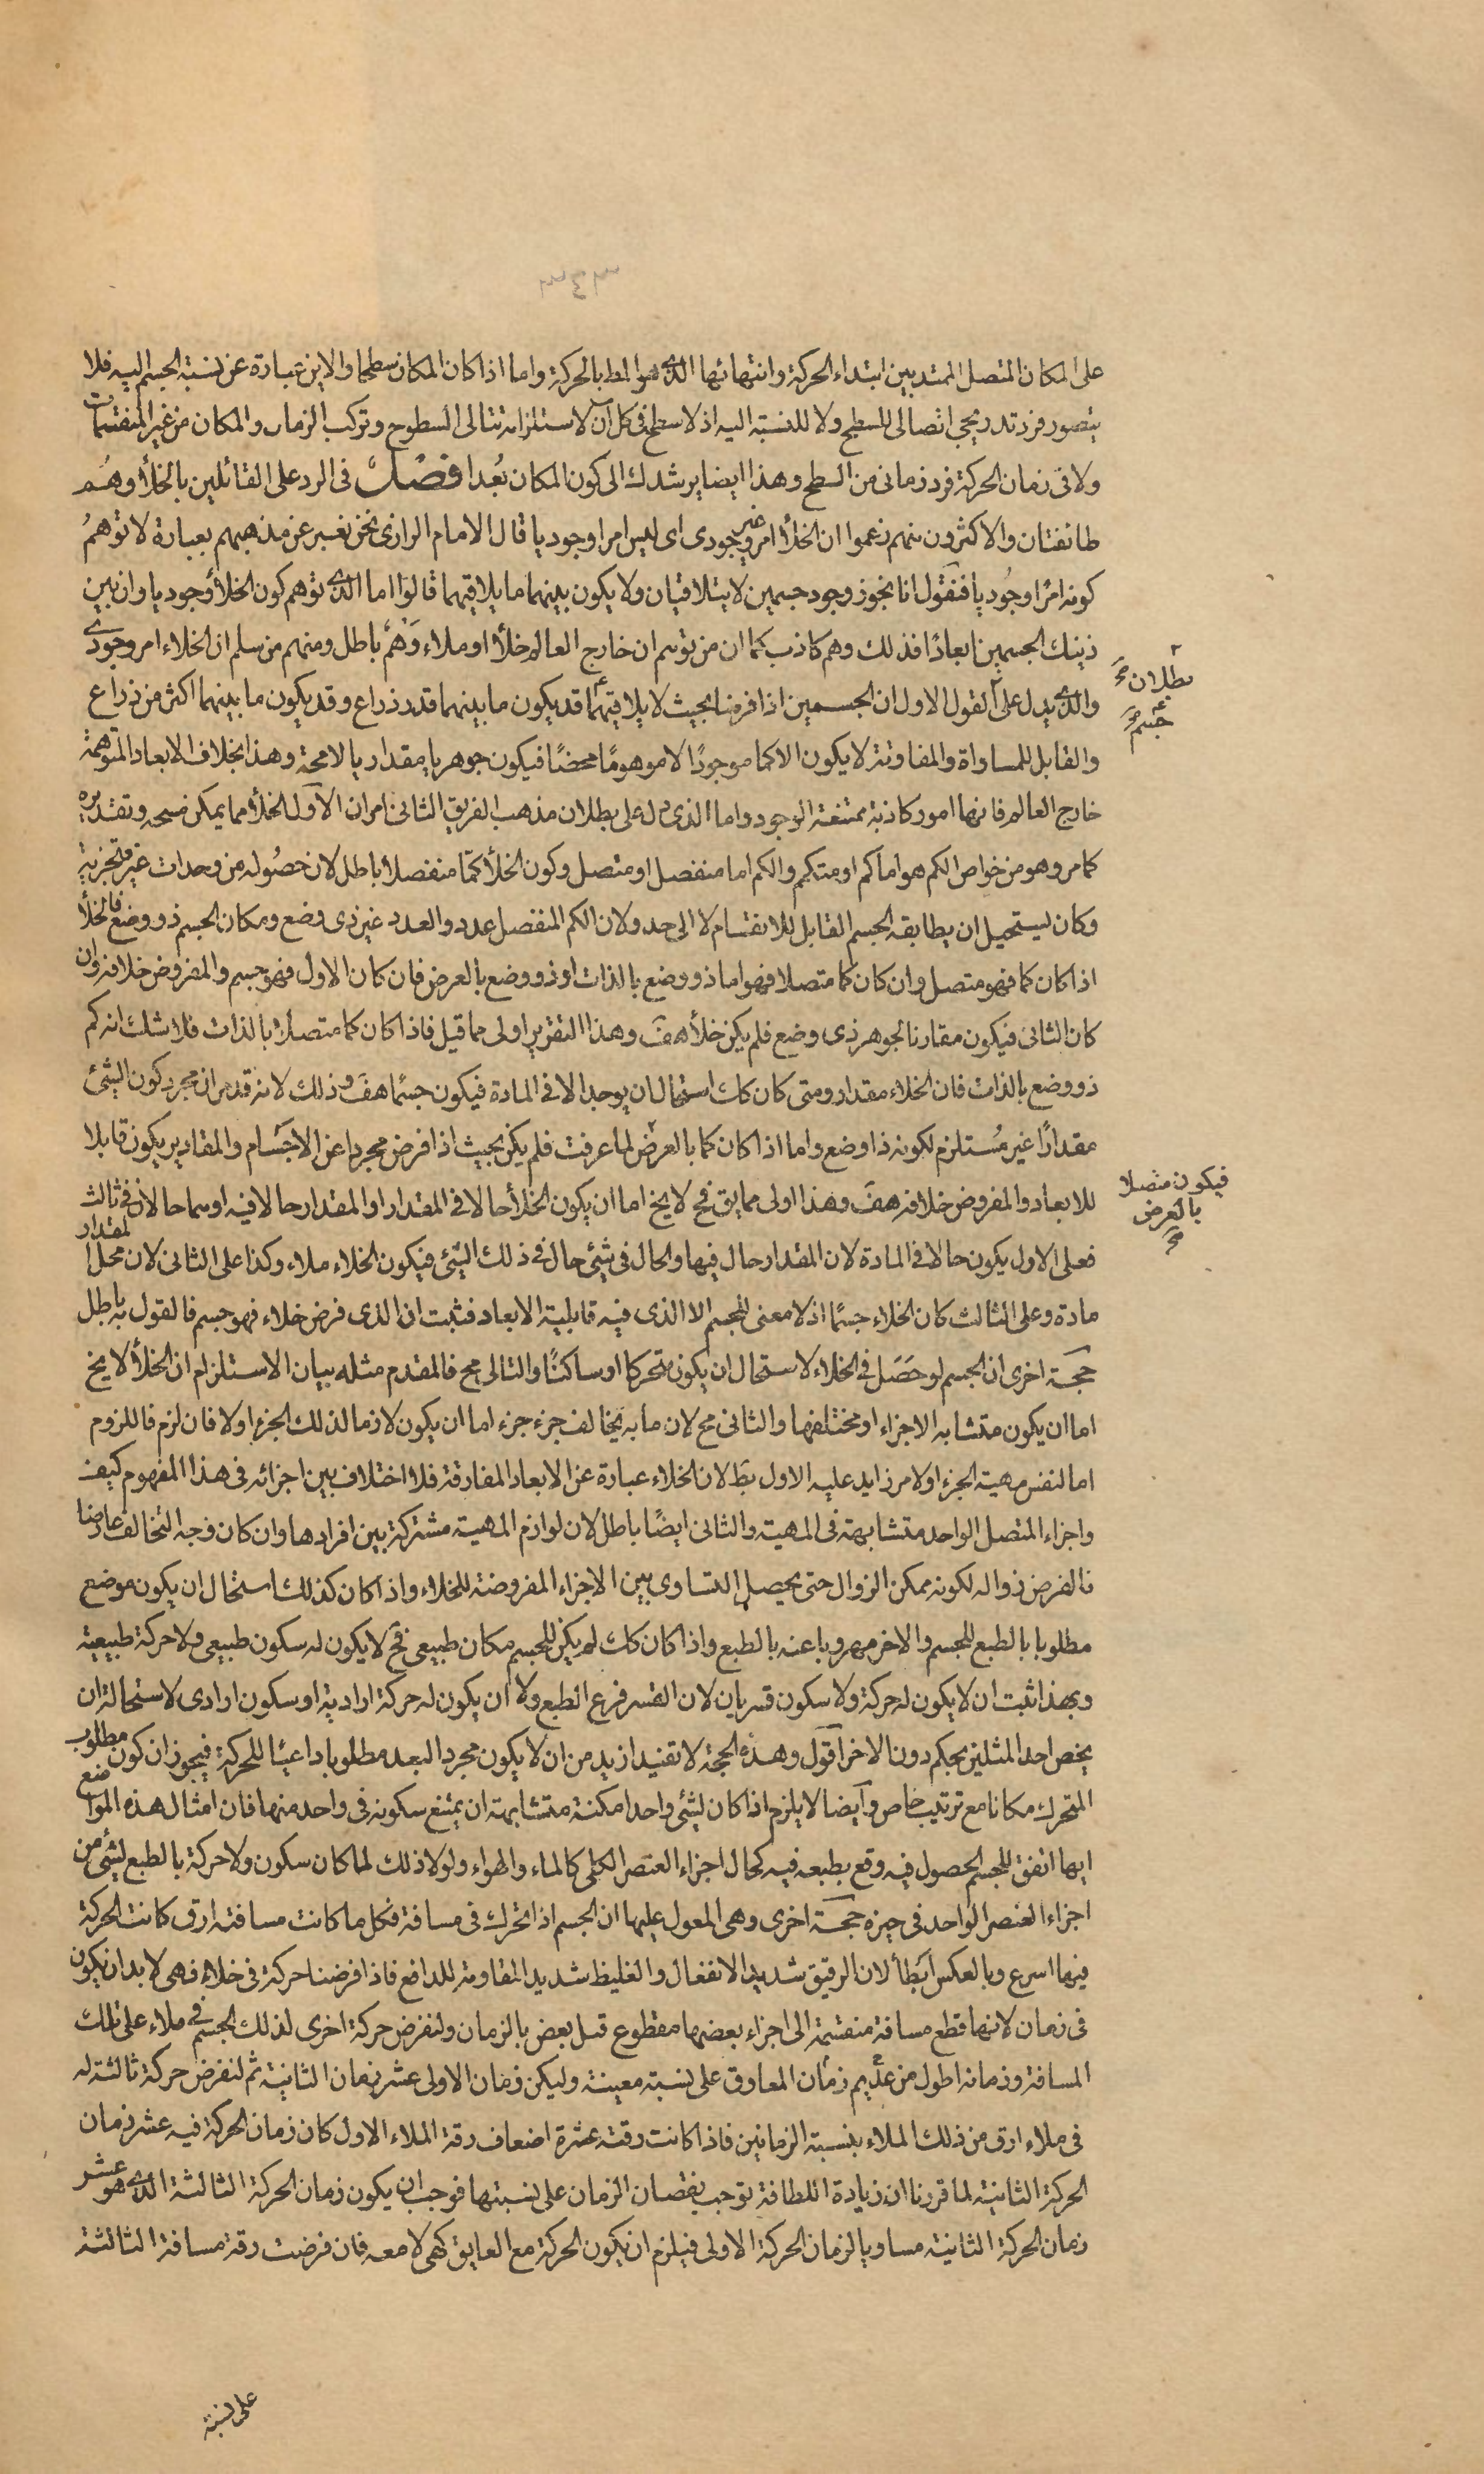 على المكان المتصل الممتد بين ابتداء الحركة وانتهائها الذى هو المط بالحركة واما اذا كان المكان سطحا والاين عبارة عن نسبة الجسم اليه فلا
يتصور فرد تدريجى اتصالى للسطح ولا للنسبة اليه اذ لا سطح فى كل آن لاستلزامه تتالى السطوح وتركب الزمان والمكان من غير المنقسمات
ولا فى زمان الحركة فرد زمانى من السطح وهذا ايضا يرشدك الى كون المكان بُعدا فصل فى الرد على القائلين بالخلأ وهُم
طائفتان والاكثرون منهم زعموا ان الخلأ امر غير وجودى اى ليس امرا وجوديا قال الامام الرازى نحن نعبر عن مذهبهم بعبارة لا توهمُ
كونه امرًا وجُوديا فنقول انا نجوز وجود جسمين لا يتلاقيان ولا يكون بينهما ما يلاقيهما قالوا اما الذى توهم كون الخلأ وجوديا وان بين
ذينك الجسمين ابعادًا فذلك وهم كاذب كما ان من توهم ان خارج العالم خلأ او ملاء وَهْم باطل ومنهم من سلم ان الخلاء امر وجودى
والذى يدل على القول الاول ان الجسمين اذا فرضا بحيث لا يلاقيهما قد يكون ما بينهما قدر ذراع وقد يكون ما بينهما اكثر من ذراع
بطلان صح
جسم صح
والقابل للمساواة والمفاوتة لا يكون الا كما موجودًا لا موهومًا محضًا فيكون جوهريا مقداريا لا محة وهذا بخلاف الابعاد المتوهمة
خارج العالم فانها امور كاذبة ممتنعة الوجود واما الذى دل على بطلان مذهب الفريق الثانى امران الاول الخلأ مما يمكن مسحه وتقديره
كما مر وهو من خواص الكم هو اما كم او متكمم والكم اما منفصل او متصل وكون الخلأ كمّا منفصلا باطل لان حصُوله من وحدات غير متجزية
وكان يستحيل ان يطابقه الجسم القابل للانقسام لا الى حد ولان الكم المنفصل عدد والعدد غير ذى وضع ومكان الجسم ذو وضع فالخلأ
اذا كان كما فهو متصل وان كان كما متصلا فهو اما ذو وضع بالذات او ذو وضع بالعرض فان كان الاول فهو جسم والمفروض خلافه وان
كان الثانى فيكون مقارنا لجوهر ذى وضع فلم يكن خلأ هف وهذا التقرير اولى مما قيل فاذا كان كما متصلا بالذات فلا شك انه كم
ذو وضع بالذات فان الخلاء مقدار ومتى كان كك استحال ان يوجد الا فى المادة فيكون جسمًا هف وذلك لانه قد مر ان مجرد كون الشئ
مقدارًا غير مُستلزم لكونه ذا وضع واما اذا كان كما بالعرض لما عرفت فلم يكن بحيث اذا فرض مجردا عن الاجسام والمقادير يكون قابلا
فيكون متصلا
بالعرض
صح
للابعاد والمفروض خلافه هف وهذا اولى مما يق فح لا يخ اما ان يكون الخلأ حالا فى المقدار او المقدار حالا فيه او هما حالان فى ثالث
فعلى الاول يكون حالا فى المادة لان المقدار حال فيها والحال فى شئ حال فى ذلك الشئ فيكون الخلاء ملاء وكذا على الثانى لان محل المقدار
مادة وعلى الثالث كان الخلاء جسمًا اذ لا معنى للجسم الا الذى فيه قابلية الابعاد فثبت ان الذى فرض خلاء فهو جسم فالقول به باطل
حجة اخرى ان الجسم لو حَصَل فى الخلاء لاستحال ان يكون متحركا او ساكنًا والتالى مح فالمقدم مثله بيان الاستلزام ان الخلأ لا يخ
اما ان يكون متشابه الاجزاء او مختلفها والثانى مح لان ما به يخالف جزء جزء اما ان يكون لازما لذلك الجزء او لا فان لزم فاللزوم
اما لنفس مهية الجزء او لامر زايد عليه الاول بط لان الخلاء عبارة عن الابعاد المفارقة فلا اختلاف بين اجزائه فى هذا المفهوم كيف
واجزاء المتصل الواحد متشابهة فى المهية والثانى ايضًا باطل لان لوازم المهية مشتركة بين افرادها وان كان وجه التخالف عارضا
فالفرض زواله لكونه ممكن الزوال حتى يحصل التساوى بين الاجزاء المفروضة للخلاء واذا كان كذلك استحال ان يكون موضع
مطلوبا بالطبع للجسم والاخر مهروبا عنه بالطبع واذا كان كك لم يكن للجسم مكان طبيعى فح لا يكون له سكون طبيعى ولا حركة طبيعية
وبهذا ثبت ان لا يكون له حركة ولا سكون قسريان لان القسر فرع الطبع ولا ان يكون له حركة ارادية او سكون ارادى لاستحالة ان
يخص احد المثلين بحكم دون الاخر اقول وهذه الحجة لا تفيد ازيد من ان لا يكون مجرد البعد مطلوبا داعيًا للحركة فيجوز ان كون مطلوب
المتحرك مكانا مع ترتيب خاص وايضا لا يلزم اذا كان لشئ واحد امكنة متشابهة ان يمتنع سكونه فى واحد منها فان امثال هذه المواضع
ايها اتفق للجسم الحصول فيه وقع بطبعه فيه كحال اجزاء العنصر الكلى كالماء والهواء ولولا ذلك لما كان سكون ولا حركة بالطبع لشئ من
اجزاء العنصر الواحد فى حيزه حجة اخرى وهى المعول عليها ان الجسم اذا تحرك فى مسافة فكل ما كانت مسافته ارق كانت الحركة
فيها اسرع وبالعكس ابطأ لان الرقيق شديد الانفعال والغليظ شديد المقاومة للدافع فاذا فرضنا حركة فى خلاء فهى لا بد ان يكون
فى زمان لانها قطع مسافة منقسمة الى اجزاء بعضها مقطوع قبل بعض بالزمان ولنفرض حركة اخرى لذلك الجسم فى ملاء على تلك
المسافة وزمانه اطول من عديم زمان المعاوق على نسبة معينة وليكن زمان الاولى عشر زمان الثانية ثم لنفرض حركة ثالثة له
فى ملاء ارق من ذلك الملاء بنسبة الزمانين فاذا كانت رقته عشرة اضعاف رقة الملاء الاول كان زمان الحركة فيه عشر زمان
الحركة الثانية لما قررنا ان زيادة اللطافة توجب نقصان الزمان على نسبتها فوجب ان يكون زمان الحركة الثالثة الذى هو عشر
زمان الحركة الثانية مساويا لزمان الحركة الاولى فيلزم ان يكون الحركة مع العايق كهى لا معه فان فرضت رقة مسافة الثالثة
على نسبة